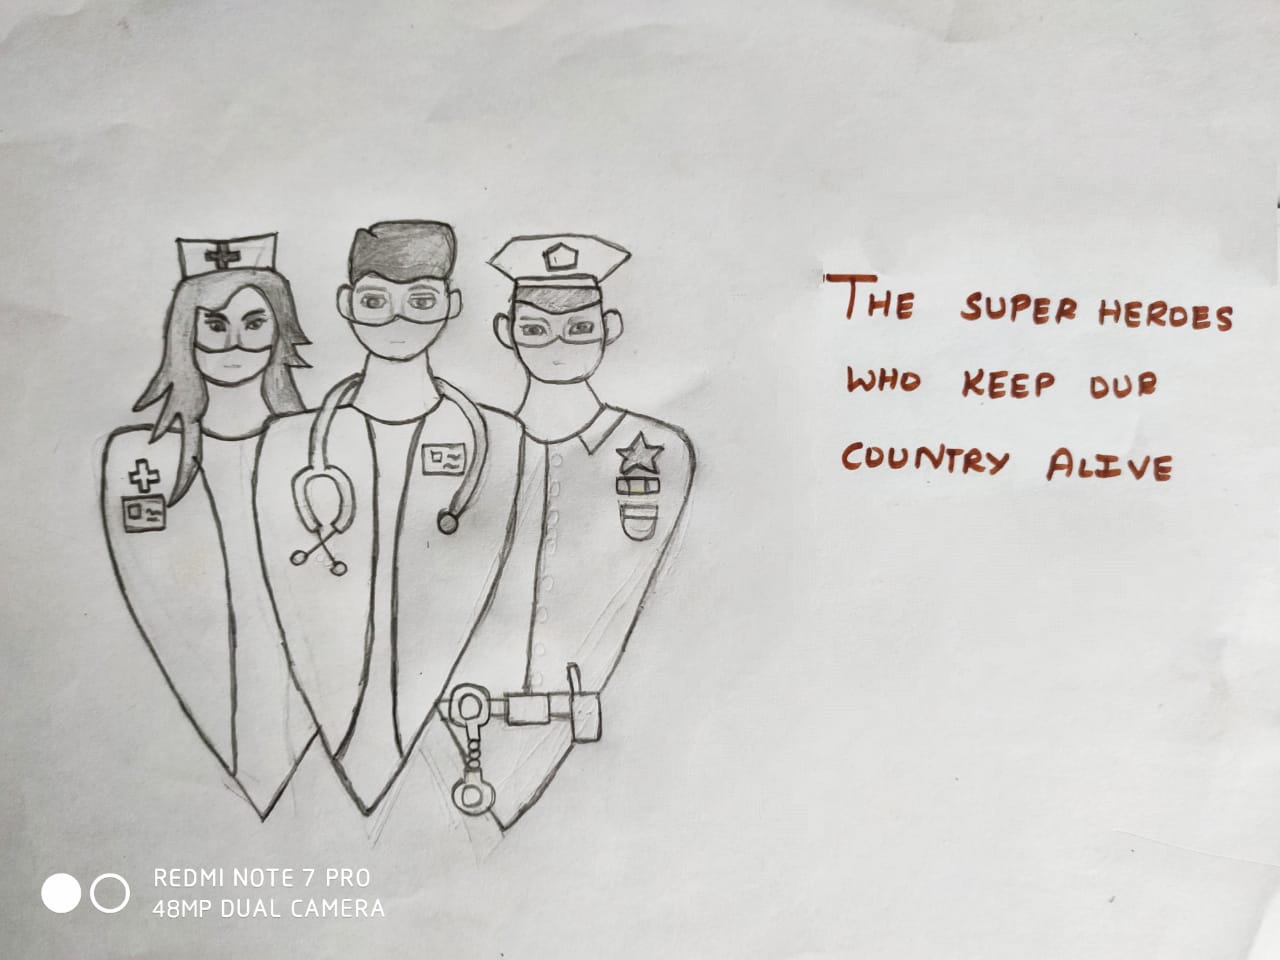 THE SUPER HEROES
WHO KEEP OUR
COUNTRY ALIVE
REDMI NOTE 7 PRO
48MP DUAL CAMERA